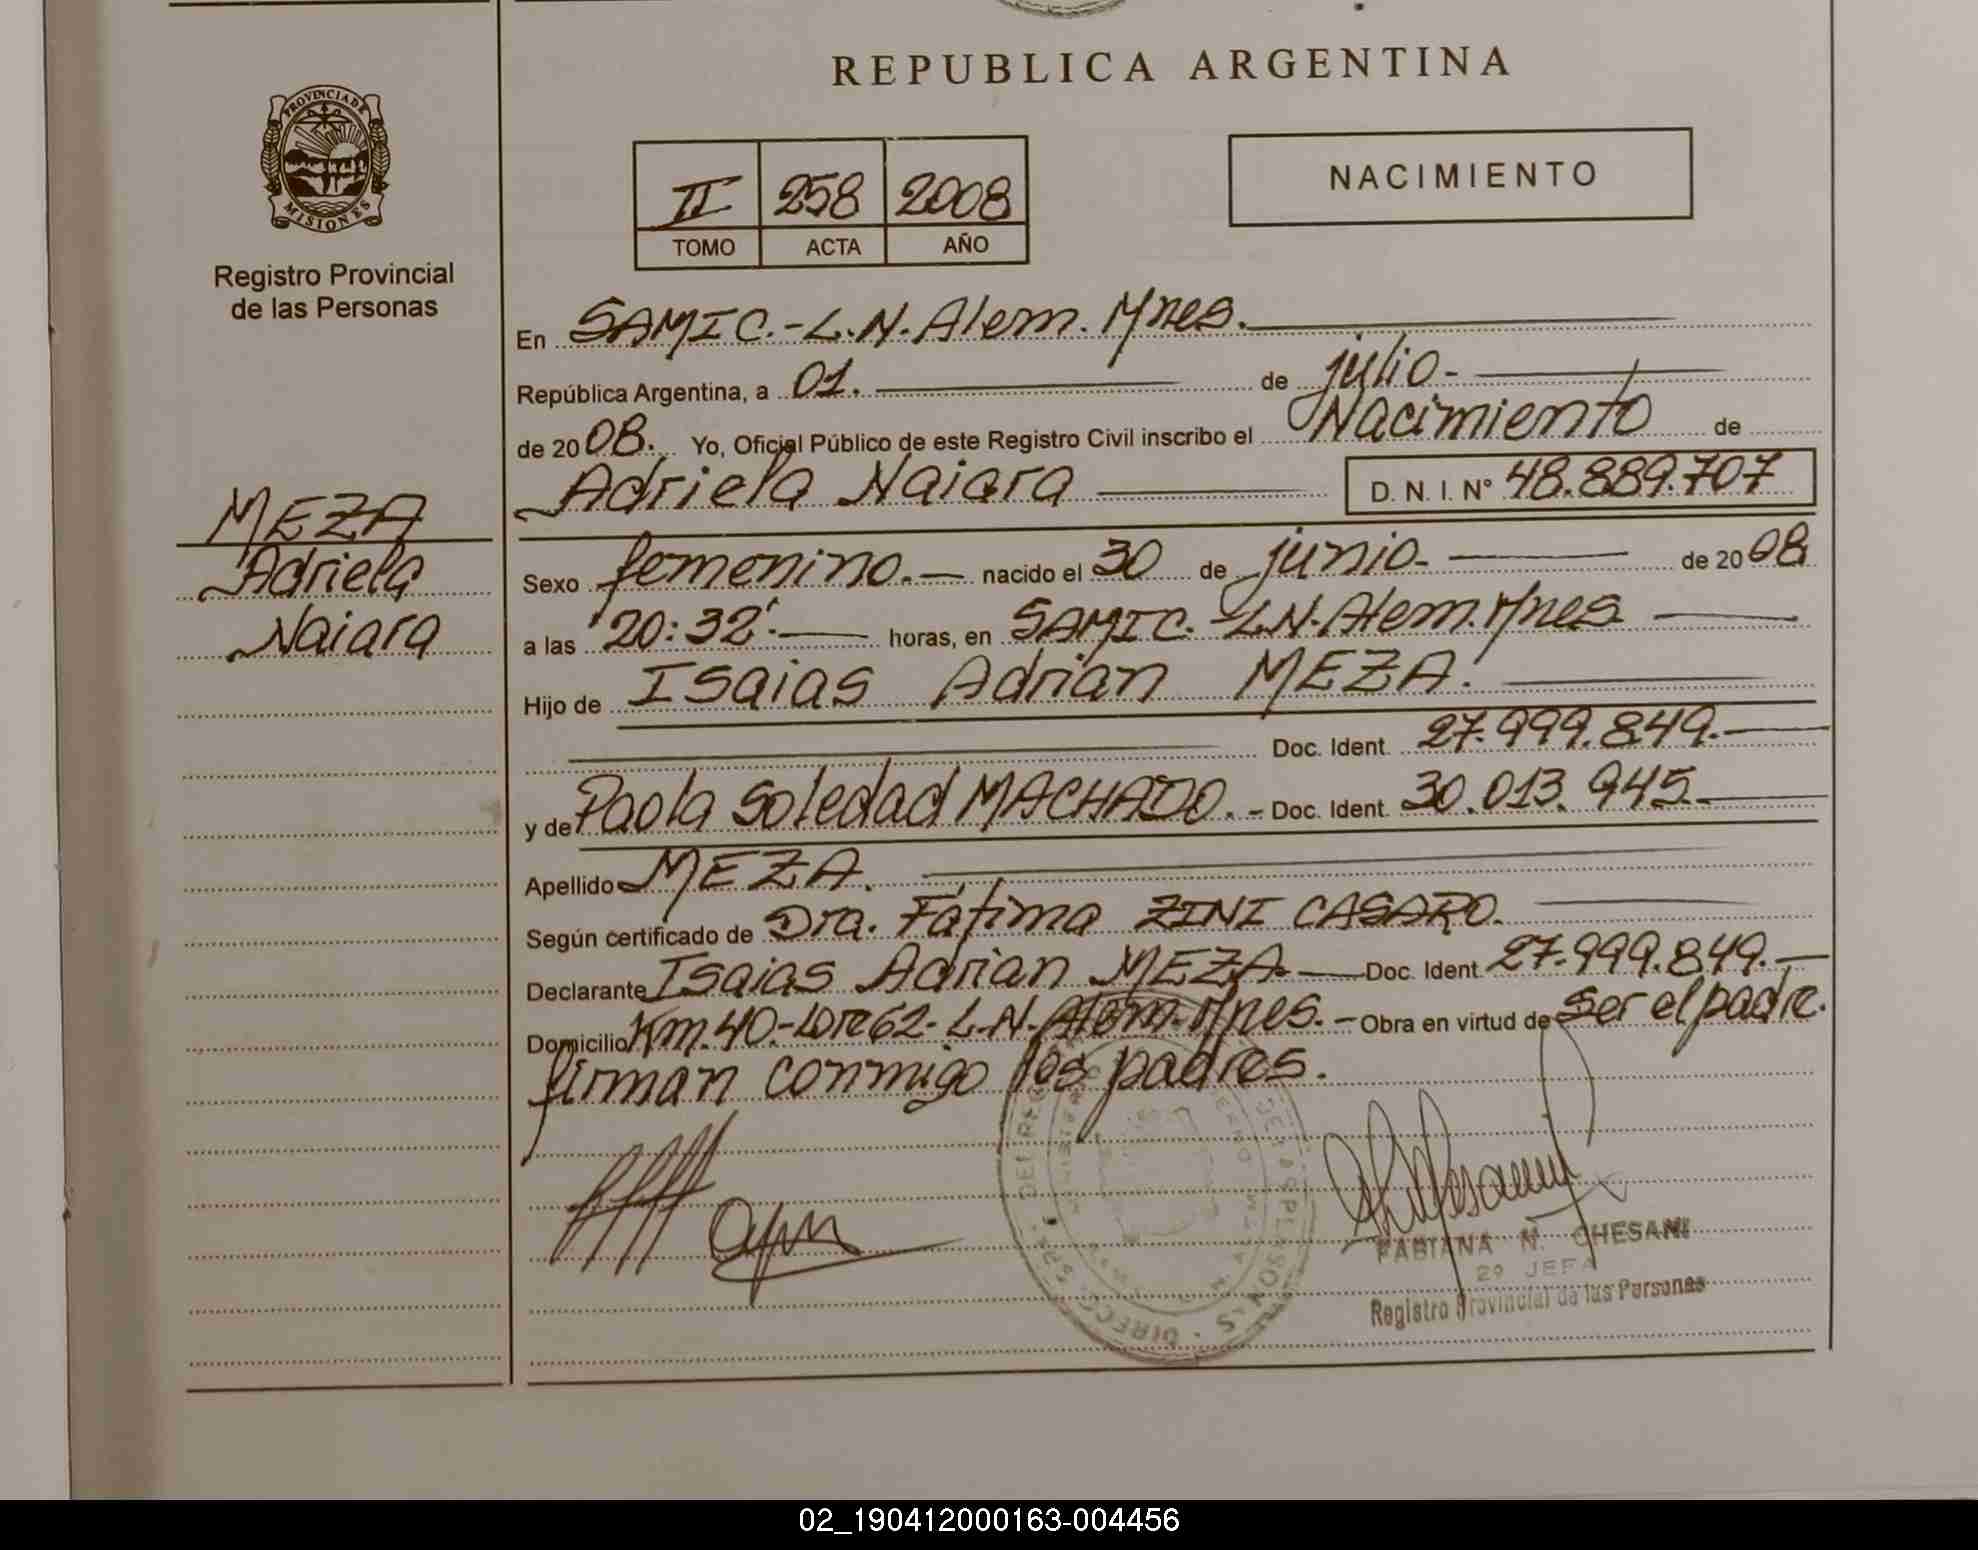 REPUBLICA ARGENTINA
PROVINCIA DE
MISIONES
Registro Provincial
de las Personas
II 258 2008
TOMO ACTA AÑO
NACIMIENTO
En SAMIC.-L.N.Alem.Mnes.
República Argentina, a 01. de julio-
de 2008. Yo, Oficial Público de este Registro Civil inscribo el Nacimiento de
Adriela Naiara D. N. I. N° 48.889.707
MEZA
Adriela
Naiara
Sexo femenino.- nacido el 30 de junio- de 2008
a las 20:32'. horas, en SAMIC.-L.N.Alem.Mnes
Hijo de Isaias Adrian MEZA.
Doc. Ident. 27.999.849.-
y de Paola Soledad MACHADO.- Doc. Ident. 30.013.945.-
Apellido MEZA.
Según certificado de Dra. Fátima ZINI CASARO.
Declarante Isaias Adrian MEZA- Doc. Ident. 27.999.849.-
Domicilio Km.40-Lote62-L.N.Alem.Mnes.- Obra en virtud de ser el padre.
firman conmigo los padres.
FABIANA N. CHESANI
2º JEFA
Registro Provincial de las Personas
02_190412000163-004456